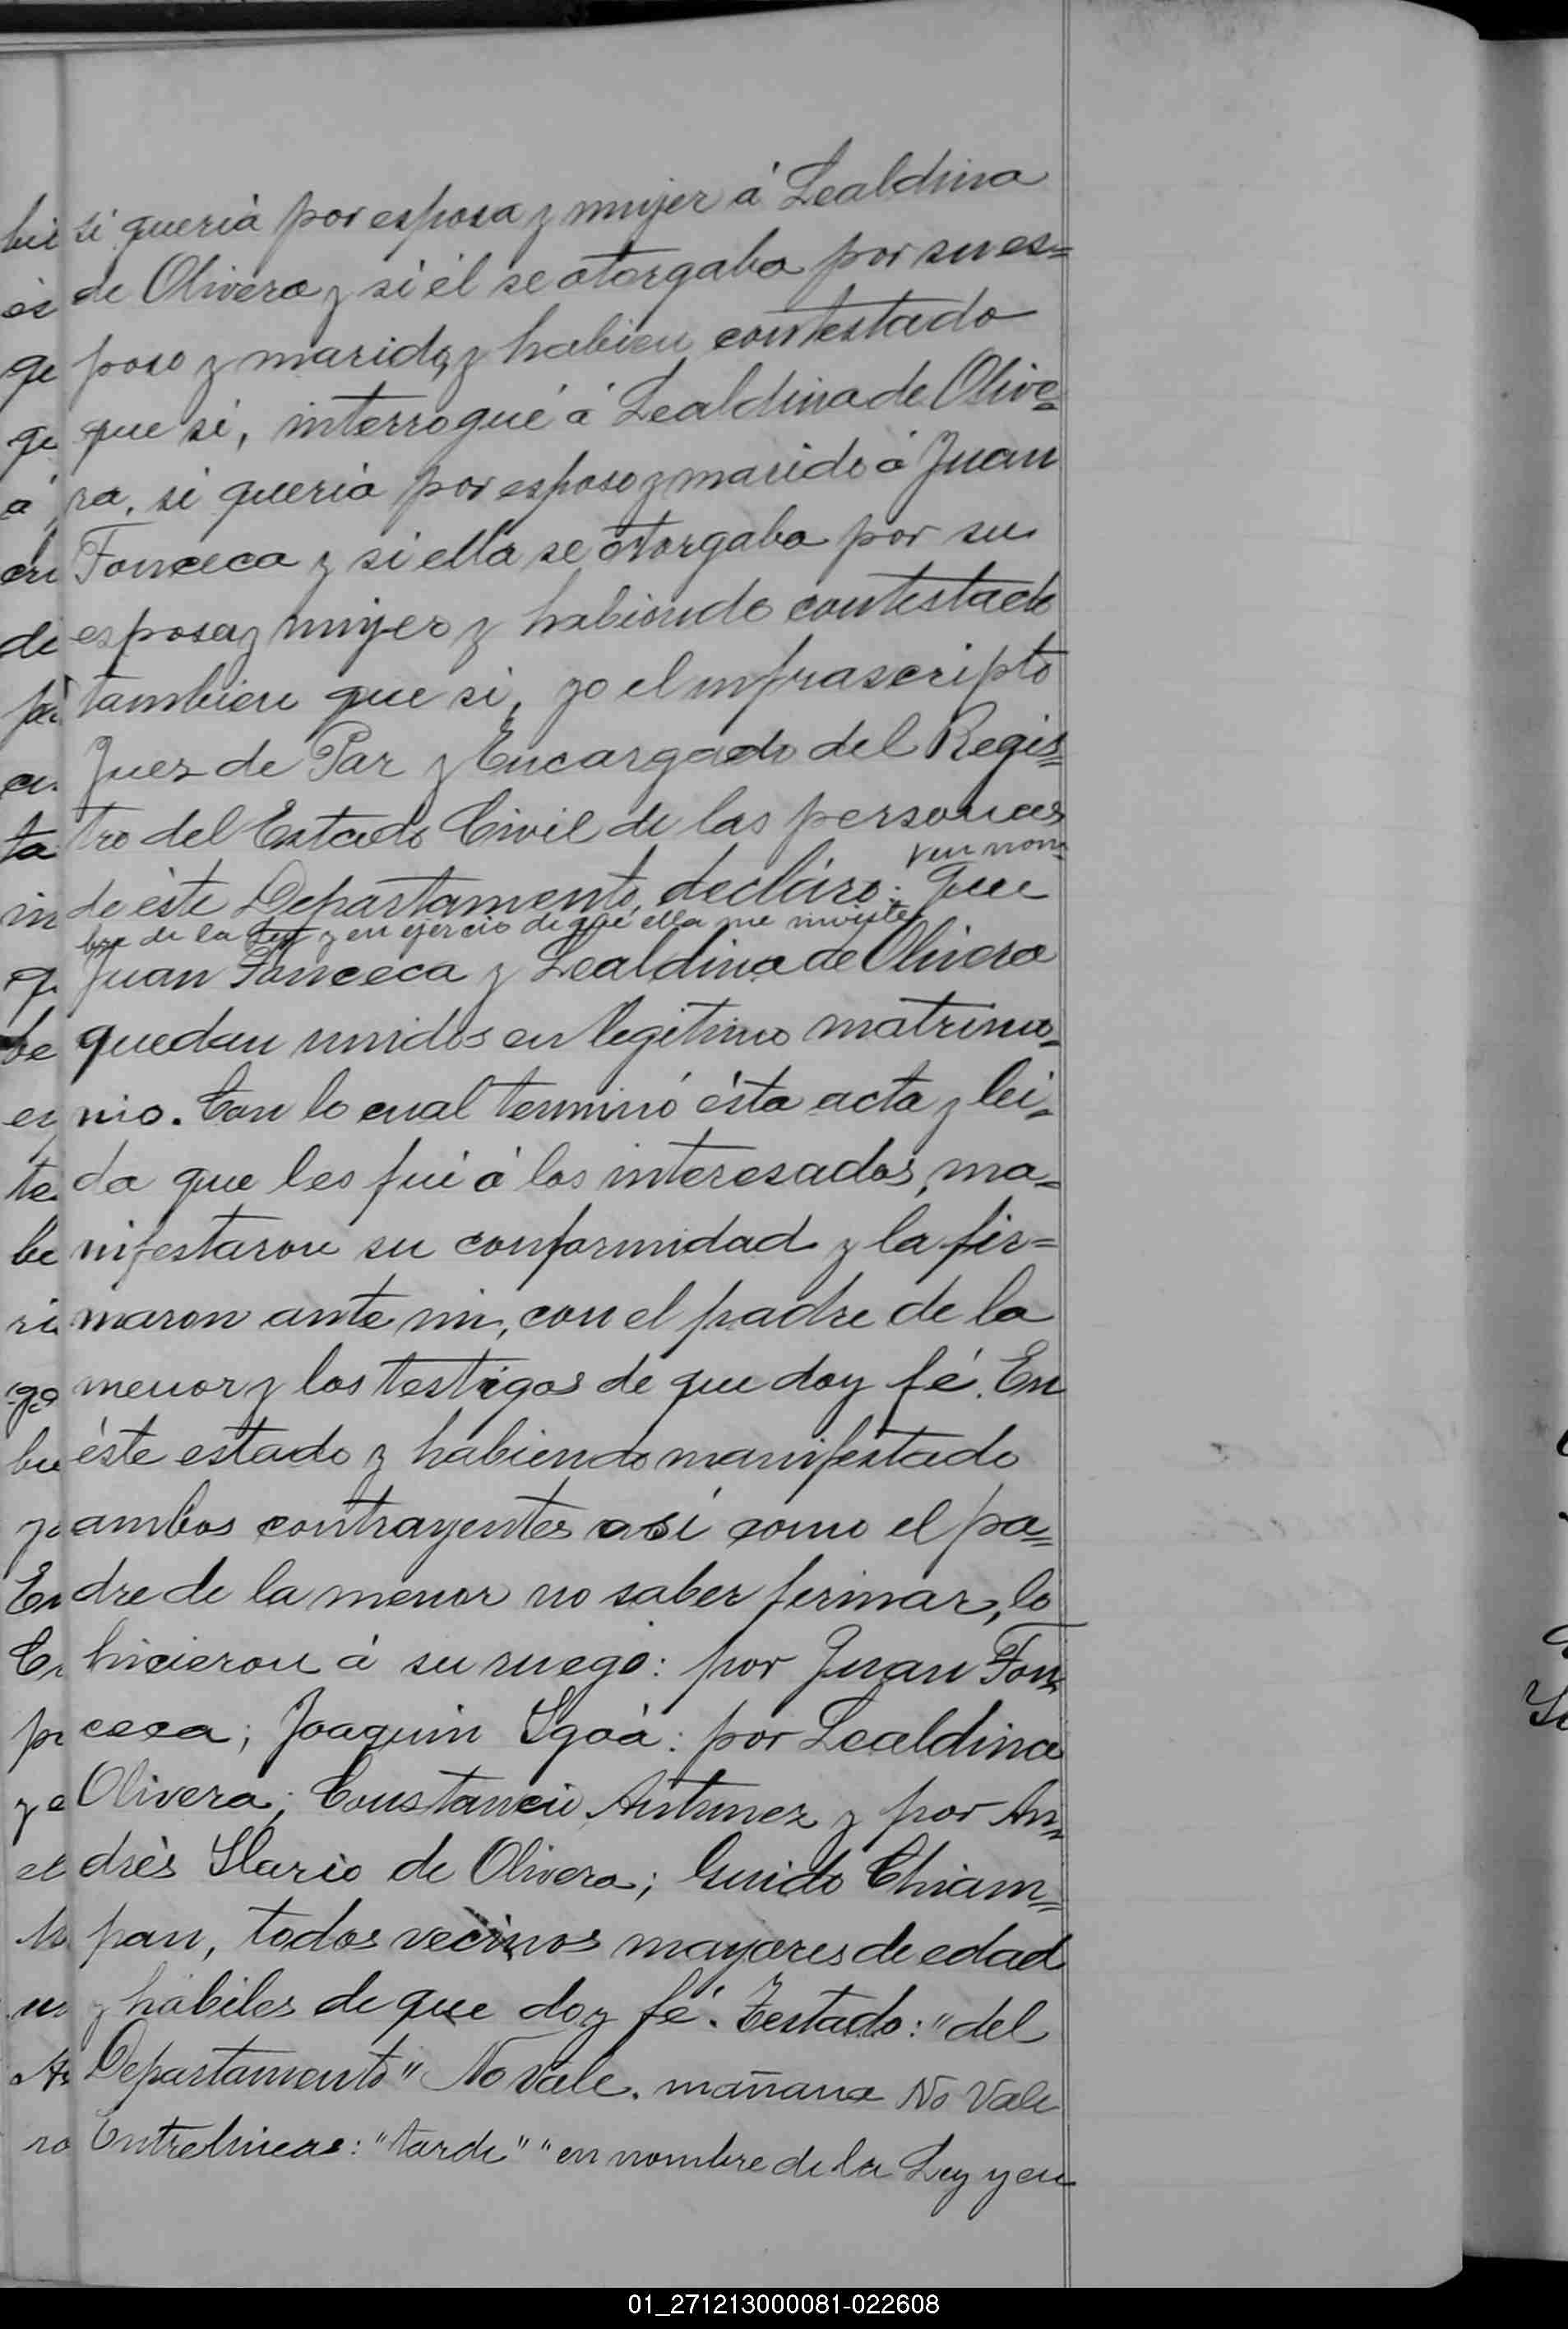 si queria por esposa y mujer á Lealdina
de Olivera y si él se otorgaba por su es=
poso y marido, y habien contestado
que si, interrogué á Lealdina de Olive=
ra, si queria por esposo y marido á Juan
Fonceca y si ella se otorgaba por su
esposa y mujer y habiendo contestado
tambien que si, yo el infrascripto
Juez de Paz y Encargado del Regis=
tro del Estado Civil de las personas
en nom=
de éste Departamento, decláro: Que
bre de la Ley y en ejercio de que ella me inviste
Juan Fonceca y Lealdina de Olivera
quedan unidos en legitimo matrimo=
nio. Con lo cual terminó ésta acta y lei=
da que les fué á los interesados, ma=
nifestaron su conformidad y la fir=
maron ante mi, con el padre de la
menor y los testigos de que doy fé. En
éste estado y habiendo manifestado
ambos contrayentes asi como el pa=
dre de la menor no saber firmar, lo
hicieron á su ruego: por Juan Fon=
ceca; Joaquin : por Lealdina
Olivera; Constancio Antunez y por An=
drés Ilario de Olivera; Guido Chiam=
pan, todos vecinos mayores de edad
y hábiles de que doy fé. Testado: "del
Departamento" No Vale. mañana No Vale
Entrelineas: "tarde" "en nombre de la Ley y en
01_271213000081-022608